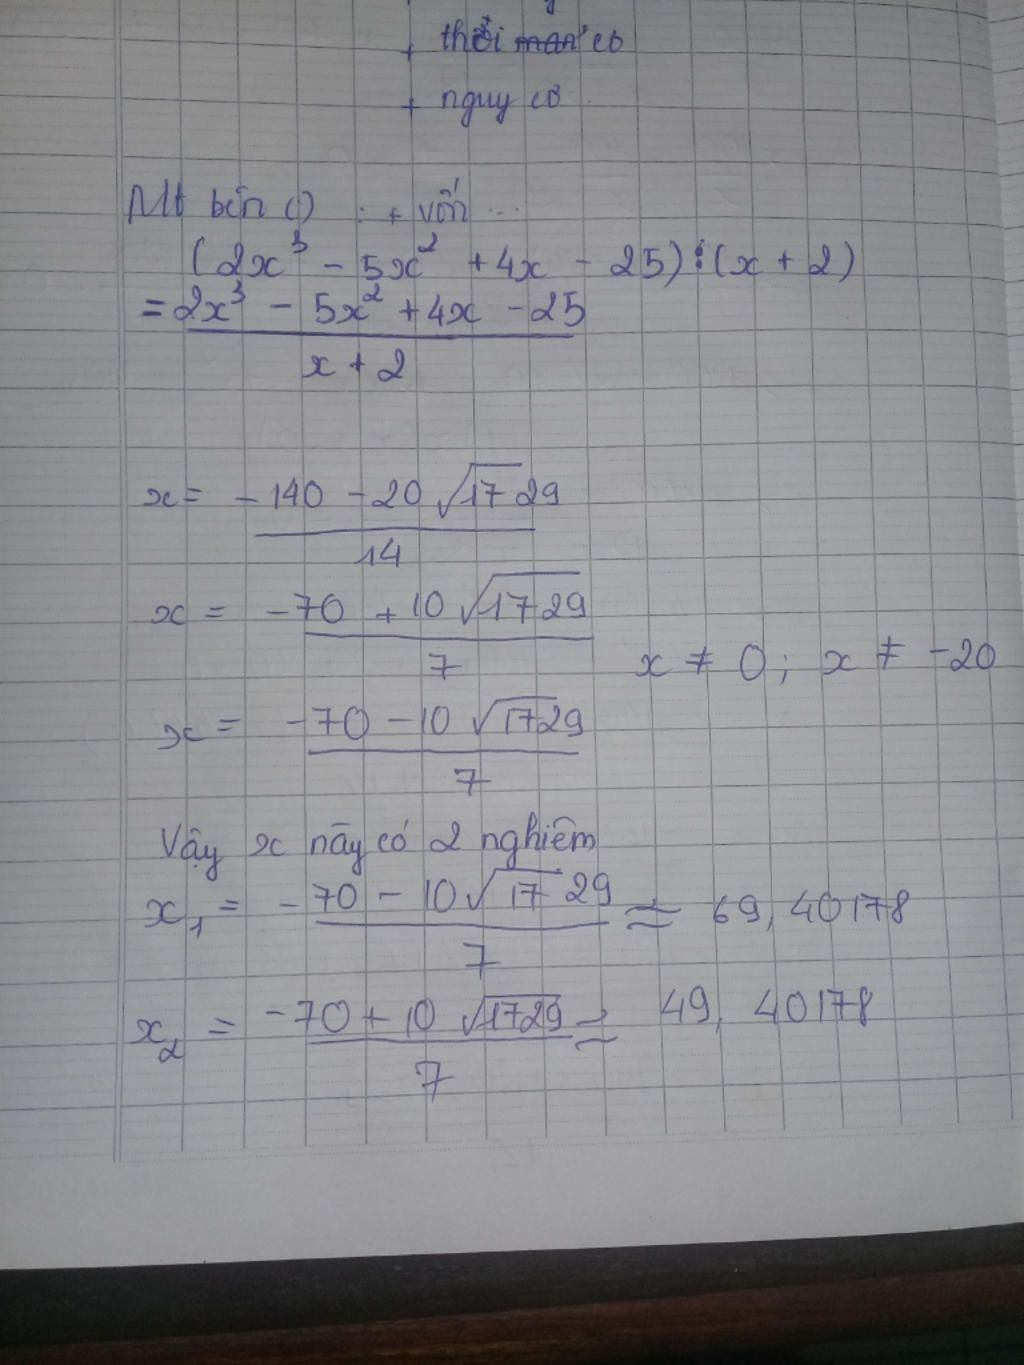 + thời cơ
+ nguy cơ
bên () : + vốn ...
(2x³ - 5x² + 4x - 25) : (x + 2)
= 2x³ - 5x² + 4x - 25
x + 2
x = -140 - 20 √1729
14
x = -70 + 10 √1729
7
x ≠ 0 ; x ≠ -20
x = -70 - 10 √1729
7
Vậy x này có 2 nghiệm
x₁ = -70 - 10 √1729 ≈ 69,40178
7
x₂ = -70 + 10 √1729 ≈ 49,40178
7